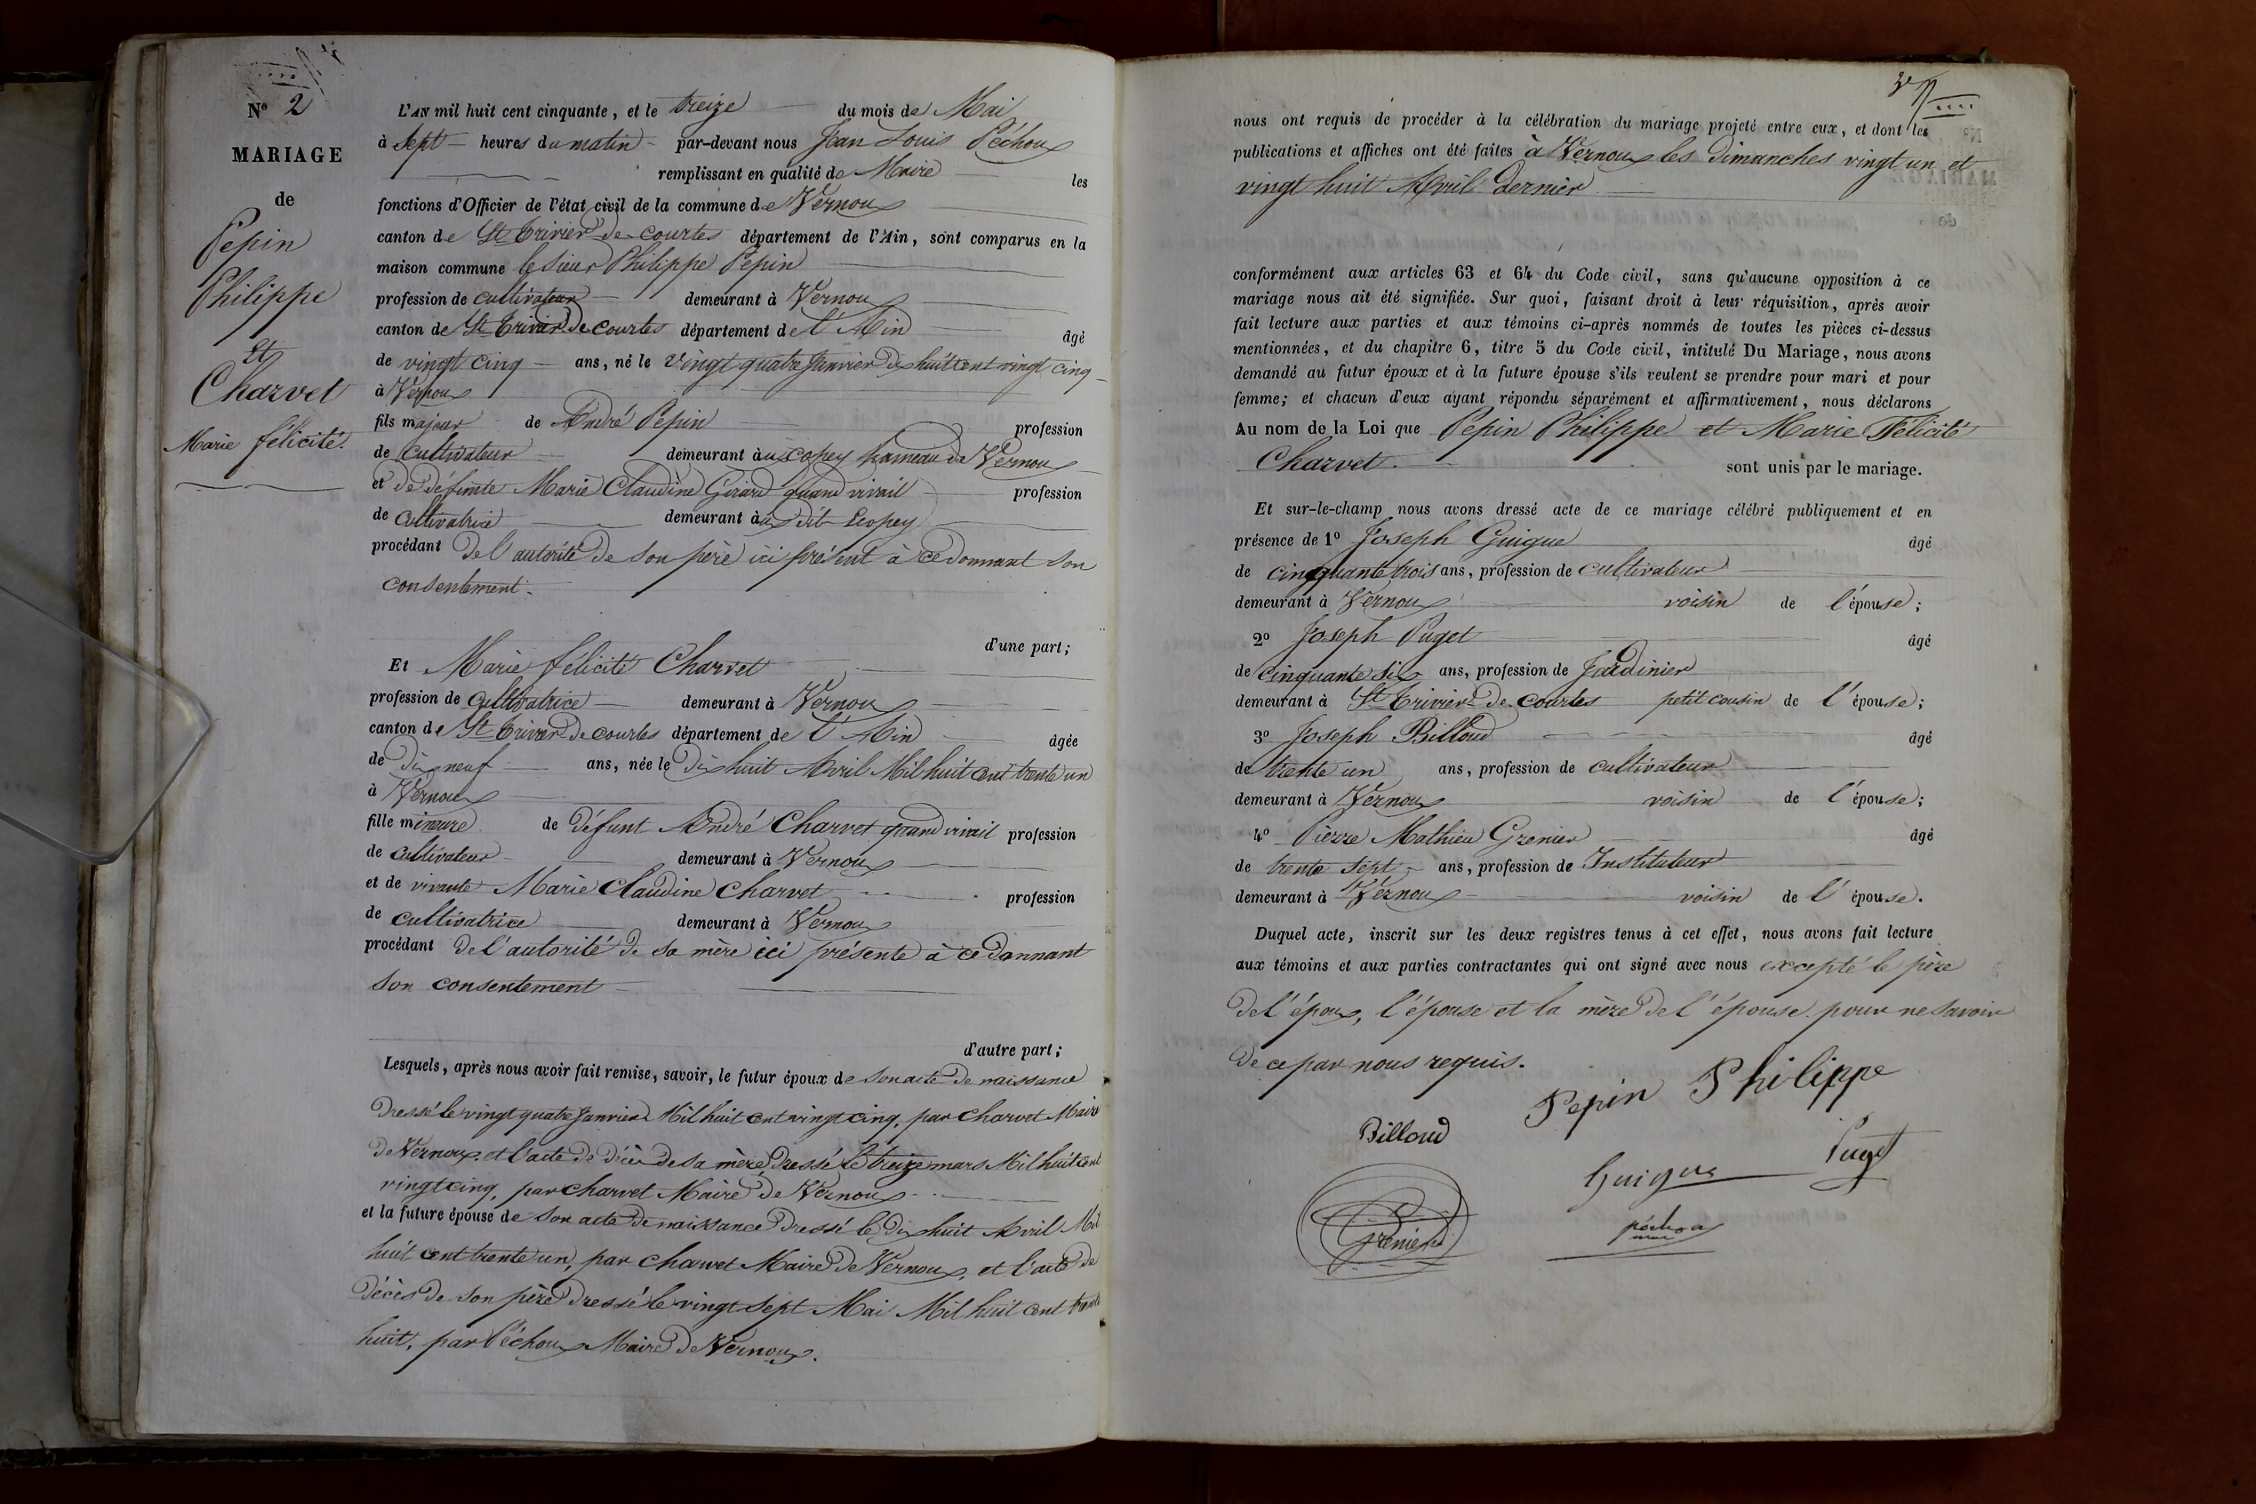 N° 2
MARIAGE
de
Pepin
Philippe
Et
Charvet
Marie félicité.
L'AN mil huit cent cinquante, et le treize du mois de Mai
à Sept heures du matin par-devant nous Jean Louis Péchoux
remplissant en qualité de Maire les
fonctions d'Officier de l'état civil de la commune de Vernoux
canton de St Trivier de courtes département de l'Ain, sont comparus en la
maison commune le Sieur Philippe Pepin
profession de cultivateur demeurant à Vernoux
canton de St Trivier de courtes département de l'Ain âgé
de vingt cinq ans, né le vingt quatre Janvier dix huit cent vingt cinq
à Vernoux
fils majeur de André Pepin profession
de cultivateur demeurant à copey hameau de Vernoux
et de défunte Marie Claudine Girard quand vivait profession
de cultivatrice demeurant à dit Ecopey
procédant de l'autorité de son père ici présent à ce donnant son
consentement.
d'une part;
Et Marie félicité Charvet
profession de cultivatrice demeurant à Vernoux
canton de St Trivier de courtes département de l'Ain âgée
de dix neuf ans, née le dix huit Avril Mil huit cent trente un
à Vernoux
fille mineure de défunt André Charvet quand vivait profession
de cultivateur demeurant à Vernoux
et de vivante Marie Claudine Charvet profession
de cultivatrice demeurant à Vernoux
procédant de l'autorité de sa mère ici présente à ce donnant
son consentement
d'autre part;
Lesquels, après nous avoir fait remise, savoir, le futur époux de son acte de naissance
dressé le vingt quatre Janvier Mil huit cent vingt cinq, par Charvet Maire
de Vernoux, et l'acte de décès de sa mère dressé le treize mars Mil huit cent
vingt cinq, par Charvet Maire de Vernoux
et la future épouse de son acte de naissance dressé le dix huit Avril Mil
huit cent trente un, par Charvet Maire de Vernoux, et l'acte de
décès de son père dressé le vingt sept Mai Mil huit cent trente
huit, par Péchoux Maire de Vernoux.
nous ont requis de procéder à la célébration du mariage projeté entre eux, et dont les
publications et affiches ont été faites à Vernoux les dimanches vingt un et
vingt huit Avril dernier
conformément aux articles 63 et 64 du Code civil, sans qu'aucune opposition à ce
mariage nous ait été signifiée. Sur quoi, faisant droit à leur réquisition, après avoir
fait lecture aux parties et aux témoins ci-après nommés de toutes les pièces ci-dessus
mentionnées, et du chapitre 6, titre 5 du Code civil, intitulé Du Mariage, nous avons
demandé au futur époux et à la future épouse s'ils veulent se prendre pour mari et pour
femme; et chacun d'eux ayant répondu séparément et affirmativement, nous déclarons
Au nom de la Loi que Pepin Philippe et Marie Félicité
Charvet sont unis par le mariage.
Et sur-le-champ nous avons dressé acte de ce mariage célébré publiquement et en
présence de 1° Joseph Guigue âgé
de cinquante trois ans, profession de cultivateur
demeurant à Vernoux voisin de l'épouse;
2° Joseph Puget âgé
de cinquante six ans, profession de Jardinier
demeurant à St Trivier de courtes petit cousin de l'épouse;
3° Joseph Billoud âgé
de trente un ans, profession de cultivateur
demeurant à Vernoux voisin de l'épouse;
4° Pierre Mathieu Grenier âgé
de trente sept ans, profession de Instituteur
demeurant à Vernoux voisin de l'épouse.
Duquel acte, inscrit sur les deux registres tenus à cet effet, nous avons fait lecture
aux témoins et aux parties contractantes qui ont signé avec nous excepté le père
de l'époux, l'épouse et la mère de l'épouse pour ne savoir
de ce par nous requis.
Pepin Philippe
Billoud
Guigue
Puget
Grenier
péchoux